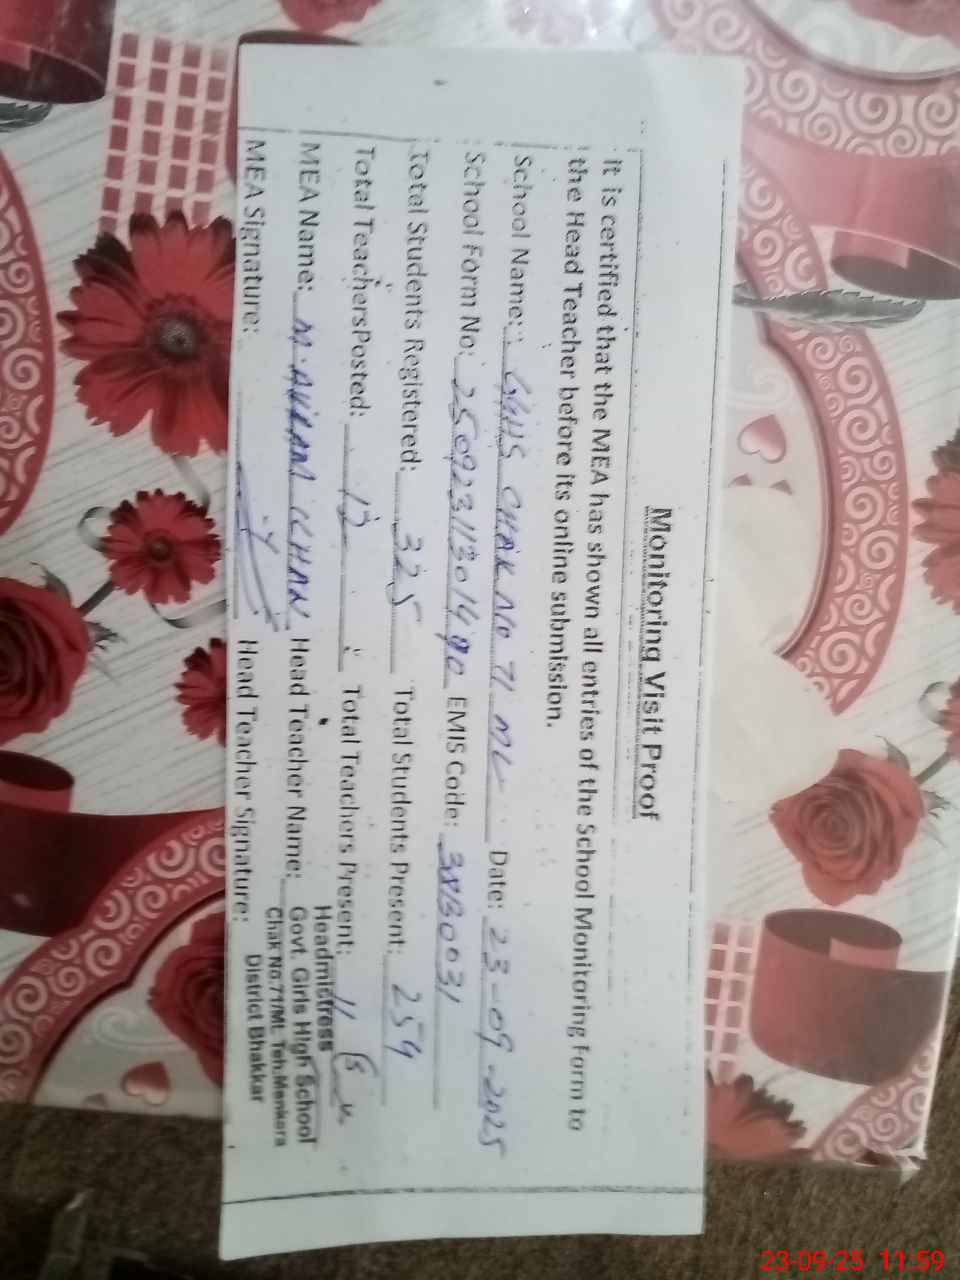 Monitoring Visit Proof
It is certified that the MEA has shown all entries of the School Monitoring Form to
the Head Teacher before its online submission.
School Name: GGHS CHAK NO 71 ML Date: 23-09-2025
School Form No: 25092311301490 EMIS Code: 38130031
Total Students Registered: 325 Total Students Present: 259
Total TeachersPosted: 12 Total Teachers Present: 11
MEA Name: M. AKRAM KHAN Head Teacher Name:
MEA Signature: Head Teacher Signature:
Headmistress
Govt. Girls High School
Chak No.71/ML Teh:Mankera
District Bhakkar
23-09-25 11:59